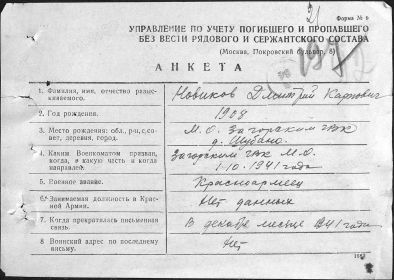 Форма № 9
УПРАВЛЕНИЕ ПО УЧЕТУ ПОГИБШЕГО И ПРОПАВШЕГО
БЕЗ ВЕСТИ РЯДОВОГО И СЕРЖАНТСКОГО СОСТАВА
(Москва, Покровский бульвар, 3)
АНКЕТА
1. Фамилия, имя, отчество разыскиваемого. Новиков Дмитрий Карпович
2. Год рождения. 1908
3. Место рождения: обл., р-н, с.совет, деревня, город. М.О. Загорский
4. Каким Военкоматом призван, когда, в какую часть и когда направлен. Загорским М.О.
1-10. 1941 года
5. Военное звание. Красноармеец
6. Занимаемая должность в Красной Армии. Нет данных
7. Когда прекратилась письменная связь. В декабре месяце 1941 года
8. Воинский адрес по последнему письму. Нет